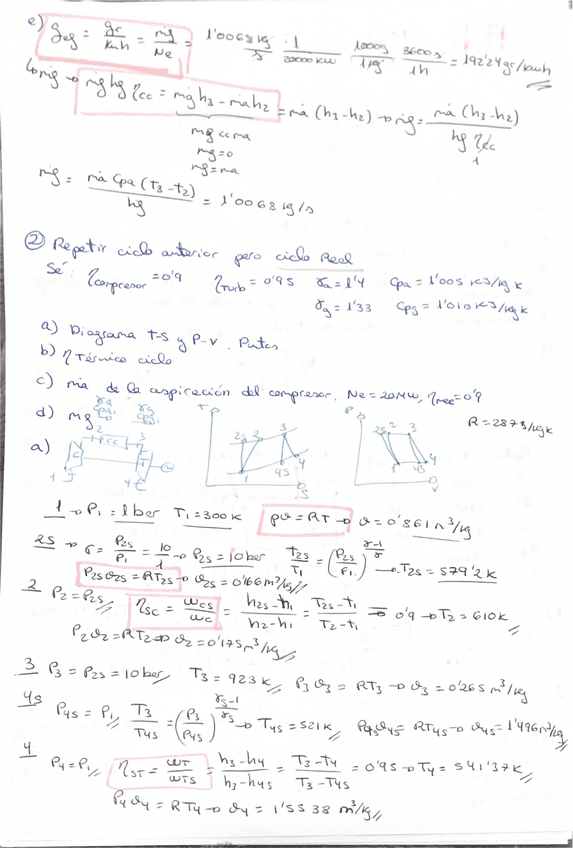 e) geg = gr/kwh = ṁg/Ne = 1'0068 kg/s · 1/20000 kW · 1000g/1kg · 3600s/1h = 192'24 gr/kwh
↳ ṁg → ṁg hg ηcc = ṁg h3 - ṁa h2 = ṁa (h3-h2) → ṁg = ṁa (h3-h2) / hg ηcc
mg << ma
mg = 0
1
mg = ma
ṁg = ṁa Cpa (T3-T2) / hg = 1'0068 kg/s
② Repetir ciclo anterior pero ciclo Real
Sé: ηcompresor = 0'9 ηTurb = 0'95 γa = 1'4 Cpa = 1'005 KJ/kg K
γg = 1'33 Cpg = 1'010 KJ/kg K
a) Diagrama T-S y P-V. Ptos
b) η Térmico ciclo
c) ṁa de la aspiración del compresor. Ne = 20MW, ηmec = 0'9
d) mg
γa γg
Cpa Cpg
R = 287 J/kg K
a) 1 2 3 4 C CC T
T 1 2s 2 3 4s 4 S
P 2s 2 3 1 4s 4 V
1 → P1 = 1 bar T1 = 300 K pϑ = RT → ϑ = 0'861 m³/kg
2S → r = P2s/P1 = 10/1 → P2s = 10 bar T2s/T1 = (P2s/P1)^(γ-1/γ) → T2s = 579'2 K
P2s ϑ2s = RT2s → ϑ2s = 0'166 m³/kg
2 P2 = P2s ηsc = ωcs/ωc = h2s - h1 / h2 - h1 = T2s - T1 / T2 - T1 = 0'9 → T2 = 610 K
P2 ϑ2 = RT2 → ϑ2 = 0'175 m³/kg
3 P3 = P2s = 10 bar T3 = 923 K P3 ϑ3 = RT3 → ϑ3 = 0'265 m³/kg
4s P4s = P1 T3/T4s = (P3/P4s)^(γg-1/γg) → T4s = 521 K P4s ϑ4s = RT4s → ϑ4s = 1'496 m³/kg
4 P4 = P1 ηST = ωT/ωTS = h3 - h4 / h3 - h4s = T3 - T4 / T3 - T4s = 0'95 → T4 = 541'37 K
P4 ϑ4 = RT4 → ϑ4 = 1'5538 m³/kg